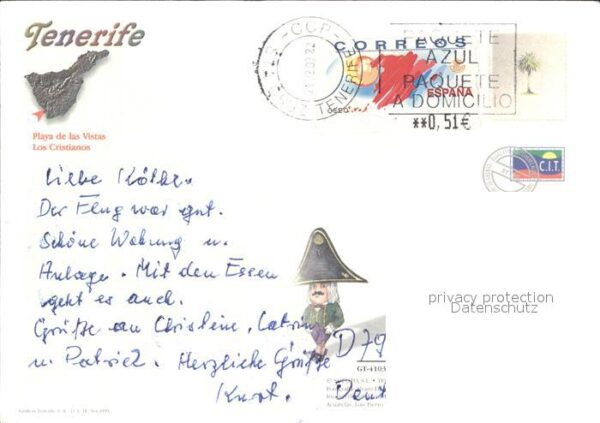 Tenerife
CORREOS
PAQUETE
AZUL
PAQUETE
A DOMICILIO
ESPAÑA
**0,51€
TENERIFE
Playa de las Vistas
Los Cristianos
C.I.T.
Liebe
Der Flug war gut.
Schöne Wohnung u.
Anlage. Mit dem Essen
geht es auch.
Grüße an Christine, Catrin
u. Patrick. Herzliche Grüße
Kurt.
D 79
Deut
GT-4103
privacy protection
Datenschutz